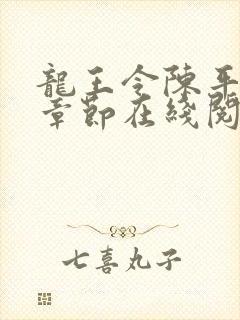 龍王令陳平
章節在綫閱
七喜丸子